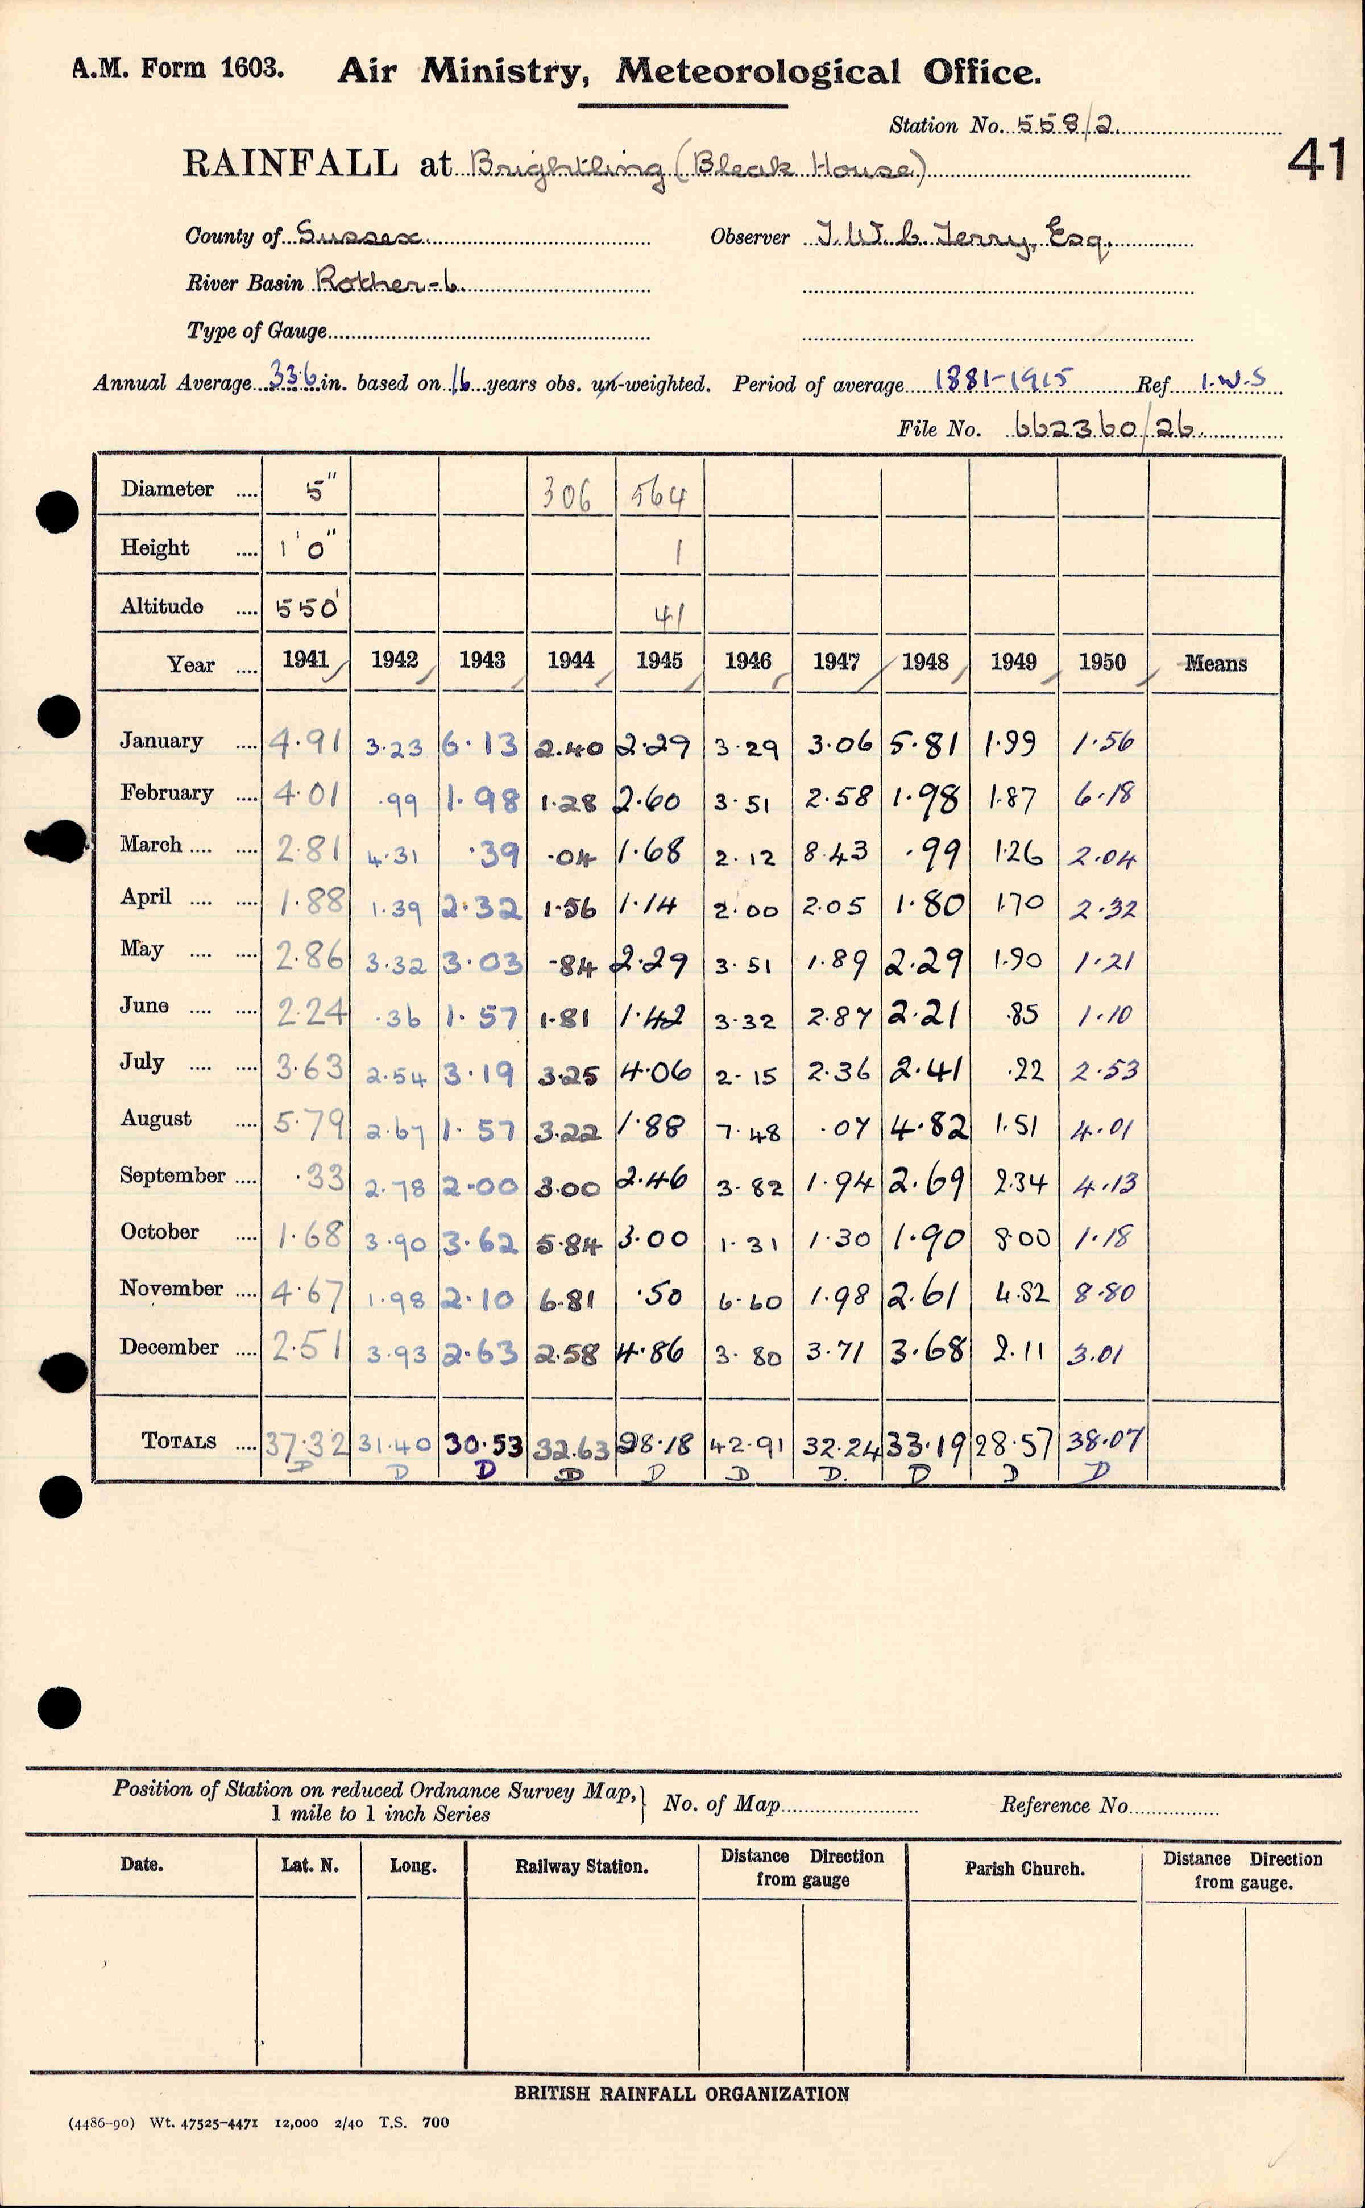 A.M. Form 1603. Air Ministry, Meteorological Office.
Station No. 558/2
41
RAINFALL at Brightling (Bleak House)
County of Sussex Observer J. W. C. Terry, Esq.
River Basin Rother-6
Type of Gauge
Annual Average 33.6 in. based on 16 years obs. un-weighted. Period of average 1881-1915 Ref I.W.S
File No. 662360/26
Diameter .... 5" 306 564
Height .... 1' 0" 1
Altitude .... 550' 41
Year .... 1941 1942 1943 1944 1945 1946 1947 1948 1949 1950 Means
January .... 4.91 3.23 6.13 2.40 2.29 3.29 3.06 5.81 1.99 1.56
February .... 4.01 .99 1.98 1.28 2.60 3.51 2.58 1.98 1.87 6.18
March .... .... 2.81 4.31 .39 .04 1.68 2.12 8.43 .99 1.26 2.04
April .... .... 1.88 1.39 2.32 1.56 1.14 2.00 2.05 1.80 1.70 2.32
May .... .... 2.86 3.32 3.03 .84 2.29 3.51 1.89 2.29 1.90 1.21
June .... .... 2.24 .36 1.57 1.81 1.42 3.32 2.87 2.21 .85 1.10
July .... .... 3.63 2.54 3.19 3.25 4.06 2.15 2.36 2.41 .22 2.53
August .... 5.79 2.67 1.57 3.22 1.88 7.48 .07 4.82 1.51 4.01
September .... .33 2.78 2.00 3.00 2.46 3.82 1.94 2.69 2.34 4.13
October .... 1.68 3.90 3.62 5.84 3.00 1.31 1.30 1.90 8.00 1.18
November .... 4.67 1.98 2.10 6.81 .50 6.60 1.98 2.61 4.82 8.80
December .... 2.51 3.93 2.63 2.58 4.86 3.80 3.71 3.68 2.11 3.01
TOTALS .... 37.32 31.40 30.53 32.63 28.18 42.91 32.24 33.19 28.57 38.07
D D D D D D D. D D D
Position of Station on reduced Ordnance Survey Map, } No. of Map Reference No.
1 mile to 1 inch Series
Date. Lat. N. Long. Railway Station. Distance Direction from gauge Parish Church. Distance Direction from gauge.
BRITISH RAINFALL ORGANIZATION
(4486-90) Wt. 47525-4471 12,000 2/40 T.S. 700